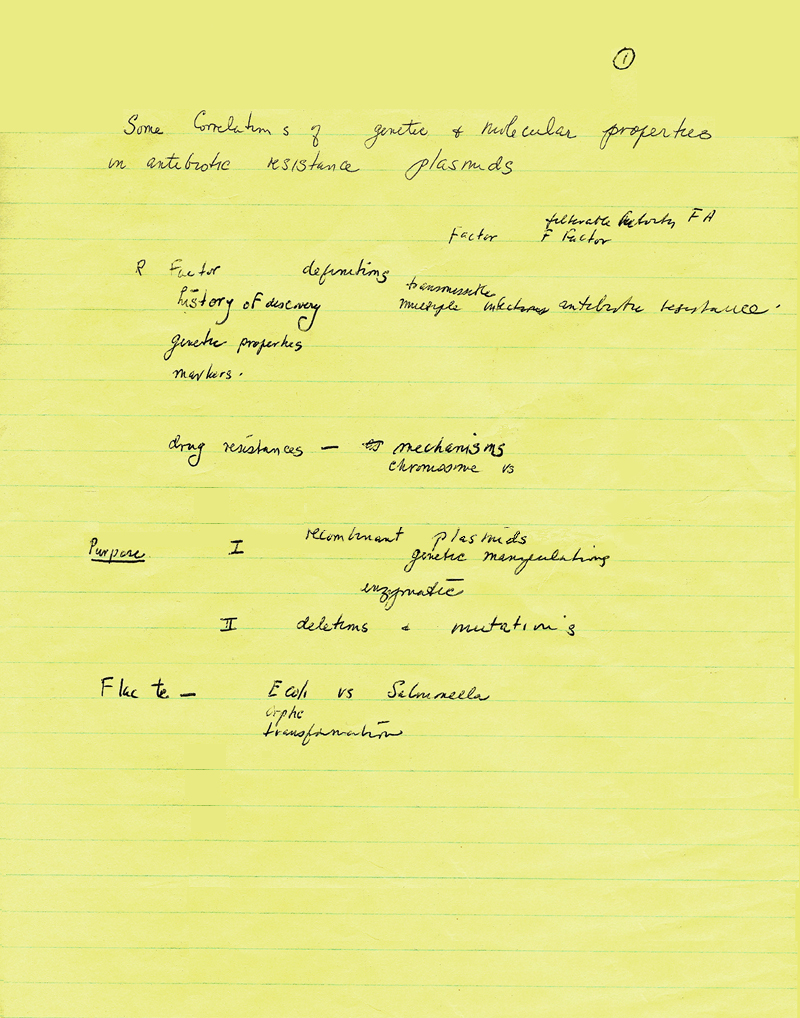 1
Some Correlations of genetic & molecular properties
in antibiotic resistance plasmids
filterable FA
Factor F Factor
R Factor definitions
transmissible
history of discovery multiple infectious antibiotic resistance.
genetic properties
markers.
drug resistances — mechanisms
chromosome vs
Purpose I recombinant plasmids
genetic manipulations
enzymatic
II deletions & mutations
E coli vs Salmonella
transformation